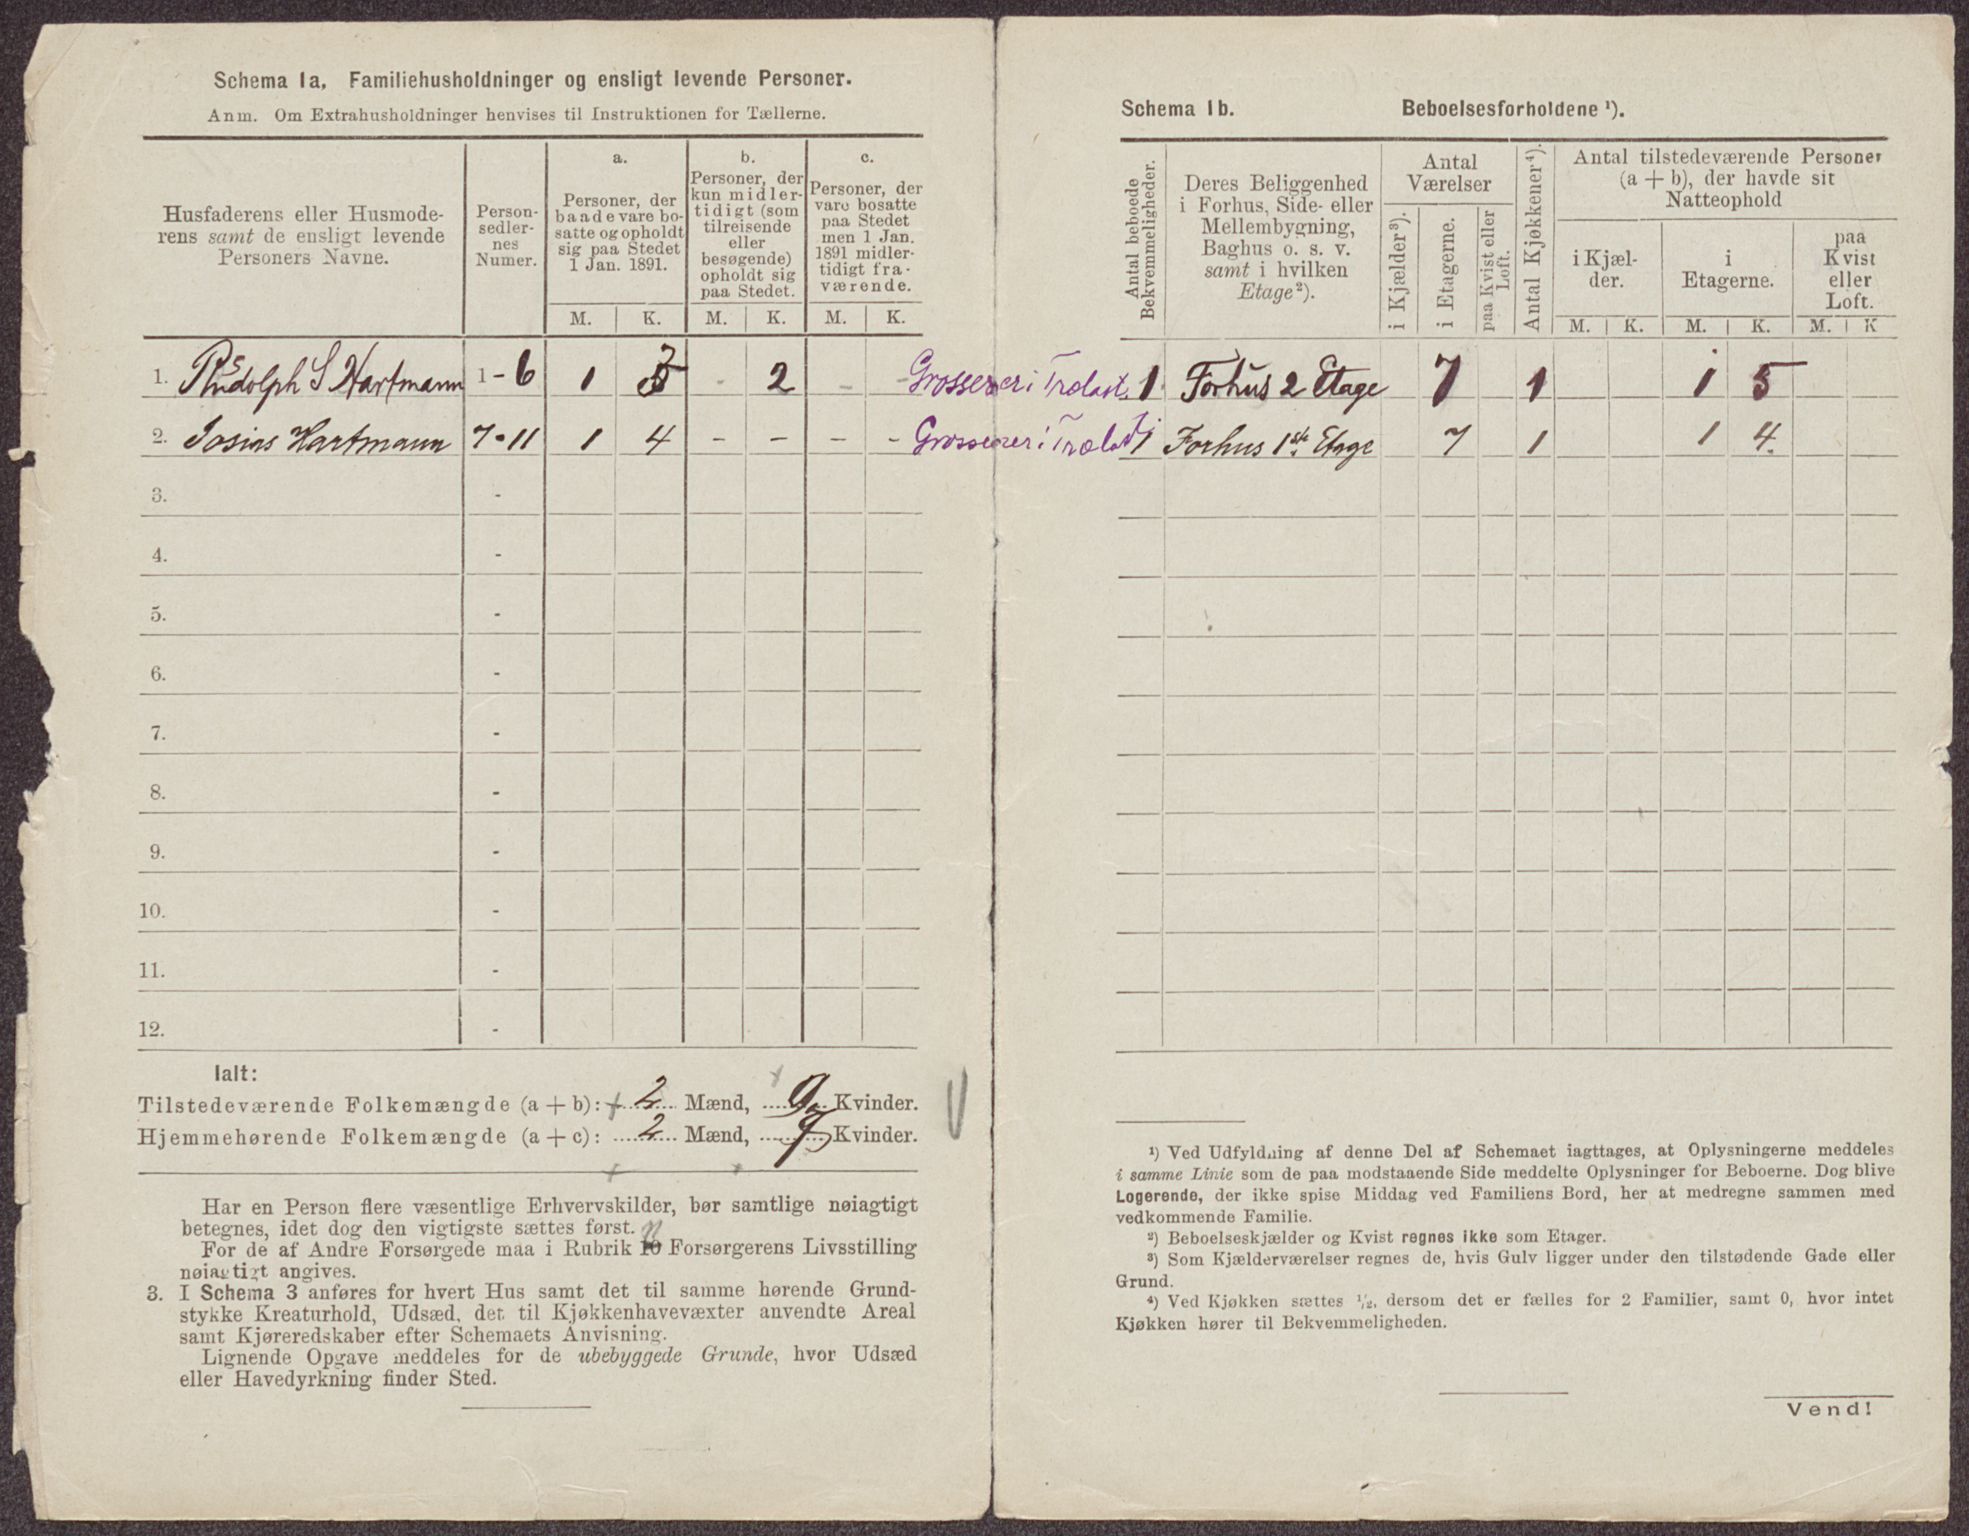 Schema 1a, Familiehusholdninger og ensligt levende Personer.
Anm. Om Extrahusholdninger henvises til Instruktionen for Tællerne.
Husfaderens eller Husmode-
rens samt de ensligt levende
Personers Navne.
Person-
sedler-
nes
Numer.
a.
Personer, der
baade vare bo-
satte og opholdt
sig paa Stedet
1 Jan. 1891.
b.
Personer, der
kun midler-
tidigt (som
tilreisende
eller
besøgende)
opholdt sig
paa Stedet.
c.
Personer, der
vare bosatte
paa Stedet
men 1 Jan.
1891 midler-
tidigt fra-
værende.
M. K. M. K. M. K.
1. Rudolph S Hartmann 1 - 6 1 3 - 2 - -
2. Josias Hartmann 7 - 11 1 4 - - - -
3. -
4. -
5. -
6. -
7. -
8. -
9. -
10. -
11. -
12. -
Ialt:
Tilstedeværende Folkemængde (a + b): 2 Mænd, 9 Kvinder.
Hjemmehørende Folkemængde (a + c): 2 Mænd, 7 Kvinder.
Har en Person flere væsentlige Erhvervskilder, bør samtlige nøiagtigt
betegnes, idet dog den vigtigste sættes først.
For de af Andre Forsørgede maa i Rubrik 10 Forsørgerens Livsstilling
nøiagtigt angives.
3. I Schema 3 anføres for hvert Hus samt det til samme hørende Grund-
stykke Kreaturhold, Udsæd, det til Kjøkkenhavevæxter anvendte Areal
samt Kjøreredskaber efter Schemaets Anvisning.
Lignende Opgave meddeles for de ubebyggede Grunde, hvor Udsæd
eller Havedyrkning finder Sted.
Schema 1b. Beboelsesforholdene ¹).
Antal beboede
Bekvemmeligheder.
Deres Beliggenhed
i Forhus, Side- eller
Mellembygning,
Baghus o. s. v.
samt i hvilken
Etage²).
Antal
Værelser
i Kjælder³).
i Etagerne.
paa Kvist eller
Loft.
Antal Kjøkkener⁴).
Antal tilstedeværende Personer
(a + b), der havde sit
Natteophold
i Kjæl-
der.
i
Etagerne.
paa
Kvist
eller
Loft.
M. K. M. K. M. K
Grosserer i Trælast. 1 Forhus 2 Etage 7 1 1 5
Grosserer i Trælast 1 Forhus 1ste Etage 7 1 1 4.
¹) Ved Udfyldning af denne Del af Schemaet iagttages, at Oplysningerne meddeles
i samme Linie som de paa modstaaende Side meddelte Oplysninger for Beboerne. Dog blive
Logerende, der ikke spise Middag ved Familiens Bord, her at medregne sammen med
vedkommende Familie.
²) Beboelseskjælder og Kvist regnes ikke som Etager.
³) Som Kjælderværelser regnes de, hvis Gulv ligger under den tilstødende Gade eller
Grund.
⁴) Ved Kjøkken sættes ½, dersom det er fælles for 2 Familier, samt 0, hvor intet
Kjøkken hører til Bekvemmeligheden.
Vend!